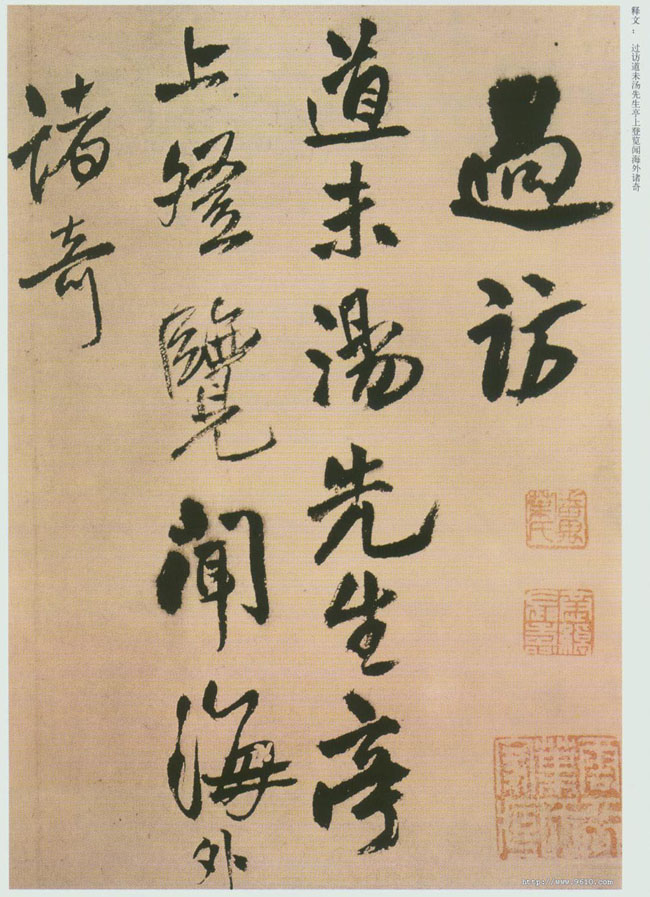 過訪
道未湯先生亭
上登覽聞海外
諸奇
释文： 过访道未汤先生亭上登览闻海外诸奇
http://www.9610.com